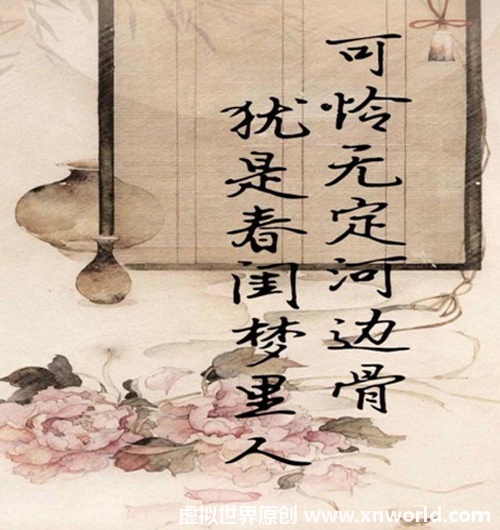 可怜无定河边骨
犹是春闺梦里人
虚拟世界原创 www.xnworld.com